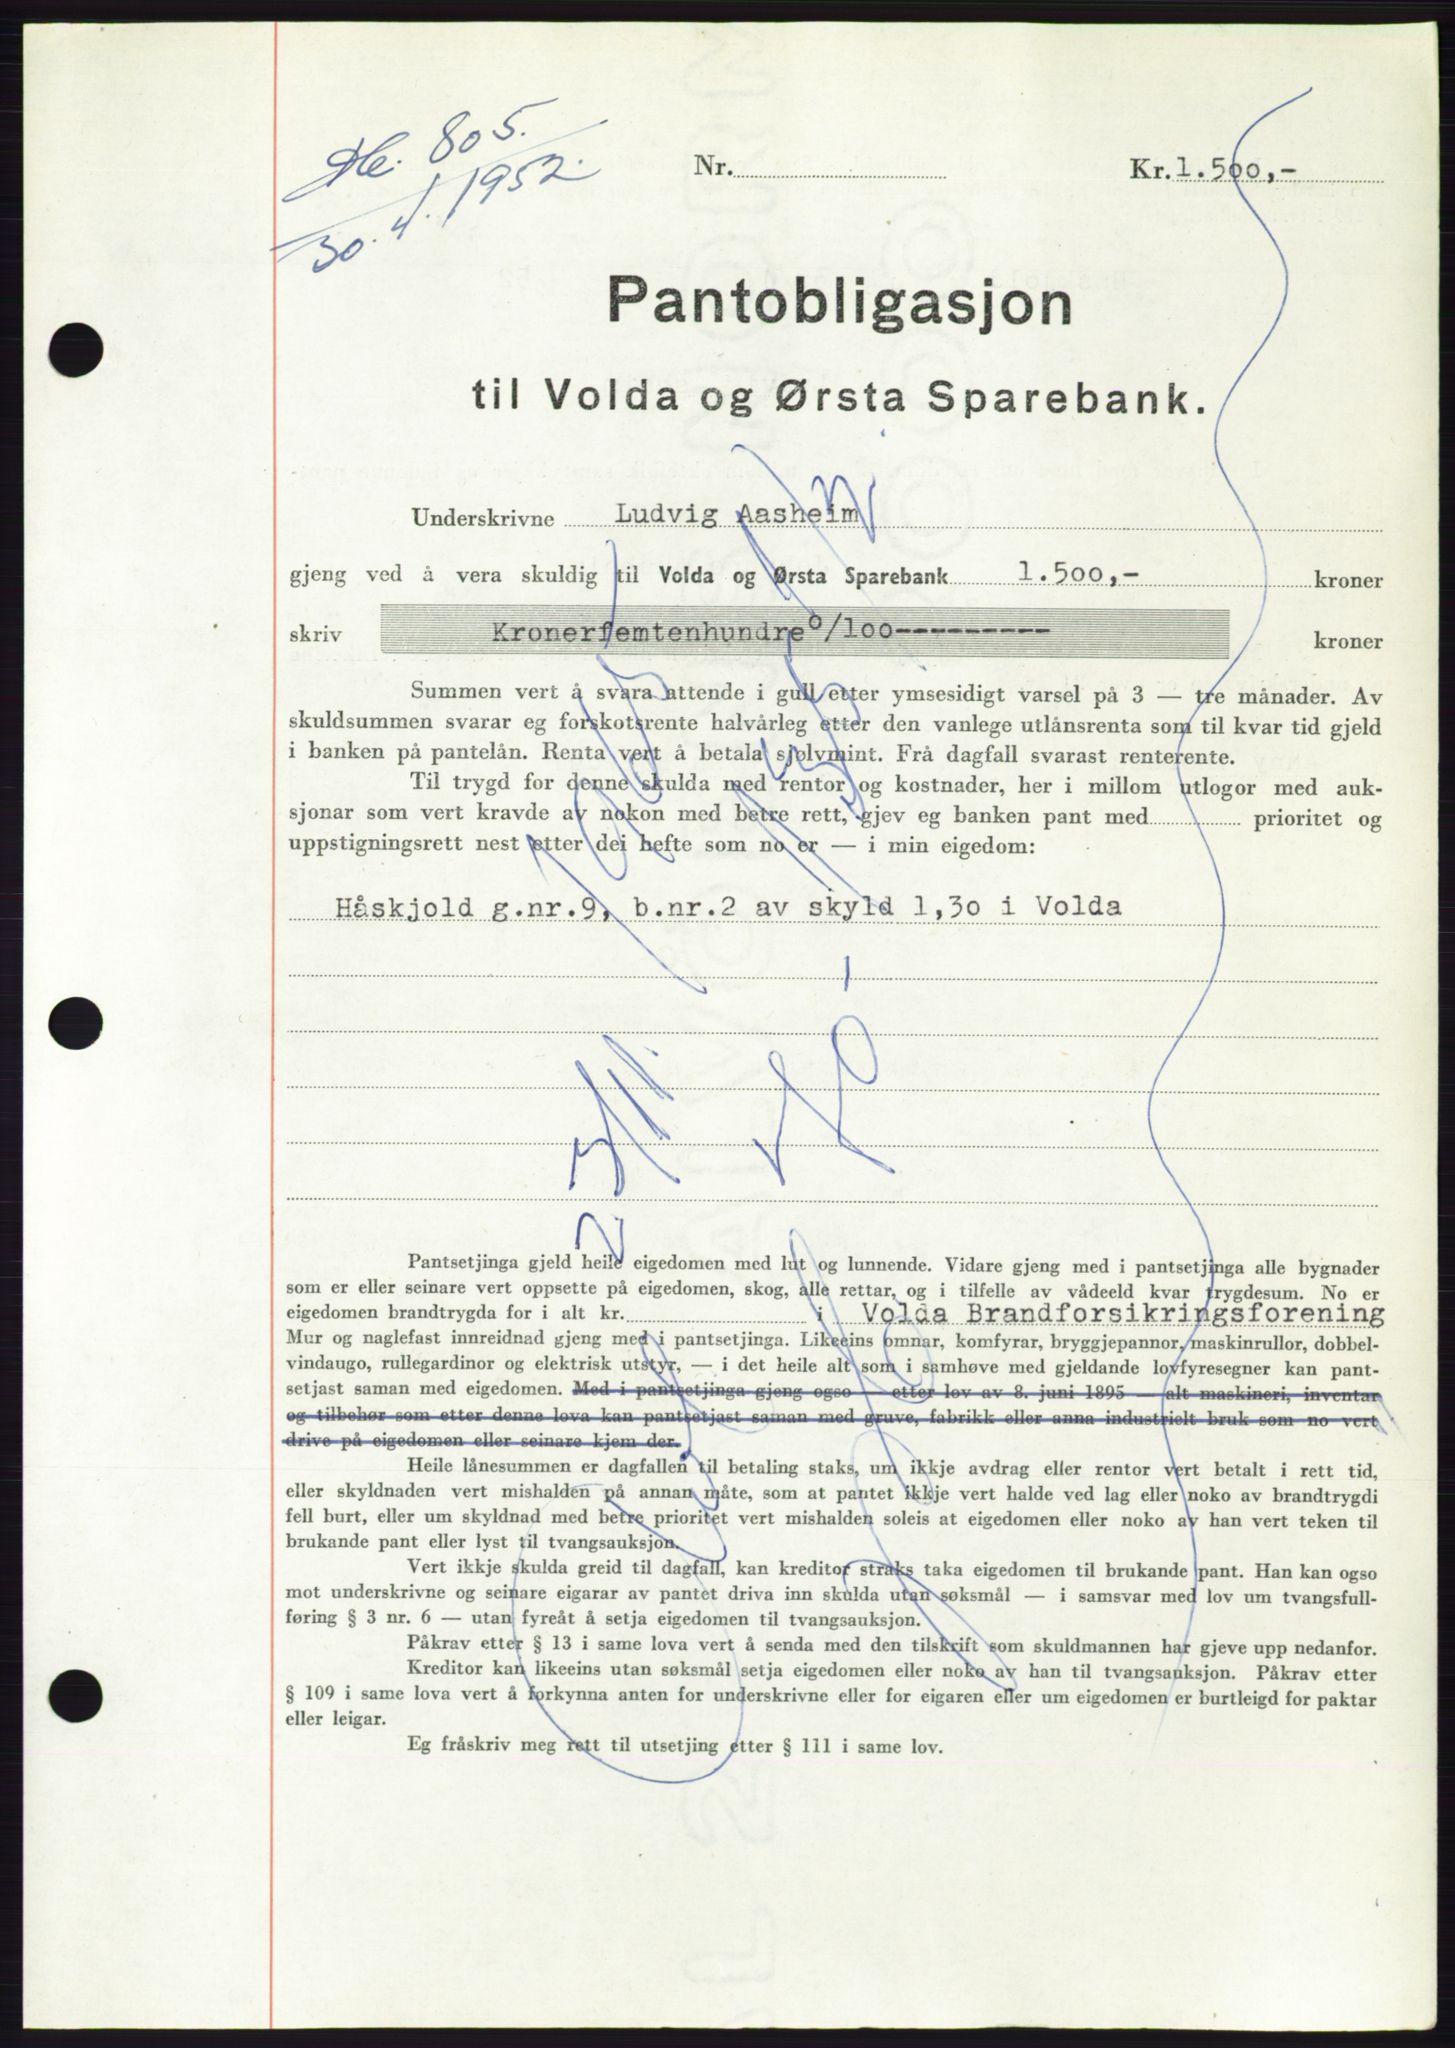 805.
30. 4. 1952.
Nr.
Kr. 1.500,-
Pantobligasjon
til Volda og Ørsta Sparebank.
Underskrivne Ludvig Aasheim
gjeng ved å vera skuldig til Volda og Ørsta Sparebank 1.500,- kroner
skriv Kronerfemtenhundre o/100---------- kroner
Summen vert å svara attende i gull etter ymsesidigt varsel på 3 — tre månader. Av
skuldsummen svarar eg forskotsrente halvårleg etter den vanlege utlånsrenta som til kvar tid gjeld
i banken på pantelån. Renta vert å betala sjølvmint. Frå dagfall svarast renterente.
Til trygd for denne skulda med rentor og kostnader, her i millom utlogor med auk-
sjonar som vert kravde av nokon med betre rett, gjev eg banken pant med prioritet og
uppstigningsrett nest etter dei hefte som no er — i min eigedom:
Håskjold g.nr.9, b.nr.2 av skyld 1,30 i Volda
Pantsetjinga gjeld heile eigedomen med lut og lunnende. Vidare gjeng med i pantsetjinga alle bygnader
som er eller seinare vert oppsette på eigedomen, skog, alle rettar, og i tilfelle av vådeeld kvar trygdesum. No er
eigedomen brandtrygda for i alt kr. i Volda Brandforsikringsforening
Mur og naglefast innreidnad gjeng med i pantsetjinga. Likeeins omnar, komfyrar, bryggjepannor, maskinrullor, dobbel-
vindaugo, rullegardinor og elektrisk utstyr, — i det heile alt som i samhøve med gjeldande lovfyresegner kan pant-
setjast saman med eigedomen. Med i pantsetjinga gjeng ogso — etter lov av 8. juni 1895 — alt maskineri, inventar
og tilbehør som etter denne lova kan pantsetjast saman med gruve, fabrikk eller anna industrielt bruk som no vert
drive på eigedomen eller seinare kjem der.
Heile lånesummen er dagfallen til betaling staks, um ikkje avdrag eller rentor vert betalt i rett tid,
eller skyldnaden vert mishalden på annan måte, som at pantet ikkje vert halde ved lag eller noko av brandtrygdi
fell burt, eller um skyldnad med betre prioritet vert mishalden soleis at eigedomen eller noko av han vert teken til
brukande pant eller lyst til tvangsauksjon.
Vert ikkje skulda greid til dagfall, kan kreditor straks taka eigedomen til brukande pant. Han kan ogso
mot underskrivne og seinare eigarar av pantet driva inn skulda utan søksmål — i samsvar med lov um tvangsfull-
føring § 3 nr. 6 — utan fyreåt å setja eigedomen til tvangsauksjon.
Påkrav etter § 13 i same lova vert å senda med den tilskrift som skuldmannen har gjeve upp nedanfor.
Kreditor kan likeeins utan søksmål setja eigedomen eller noko av han til tvangsauksjon. Påkrav etter
§ 109 i same lova vert å forkynna anten for underskrivne eller for eigaren eller um eigedomen er burtleigd for paktar
eller leigar.
Eg fråskriv meg rett til utsetjing etter § 111 i same lov.